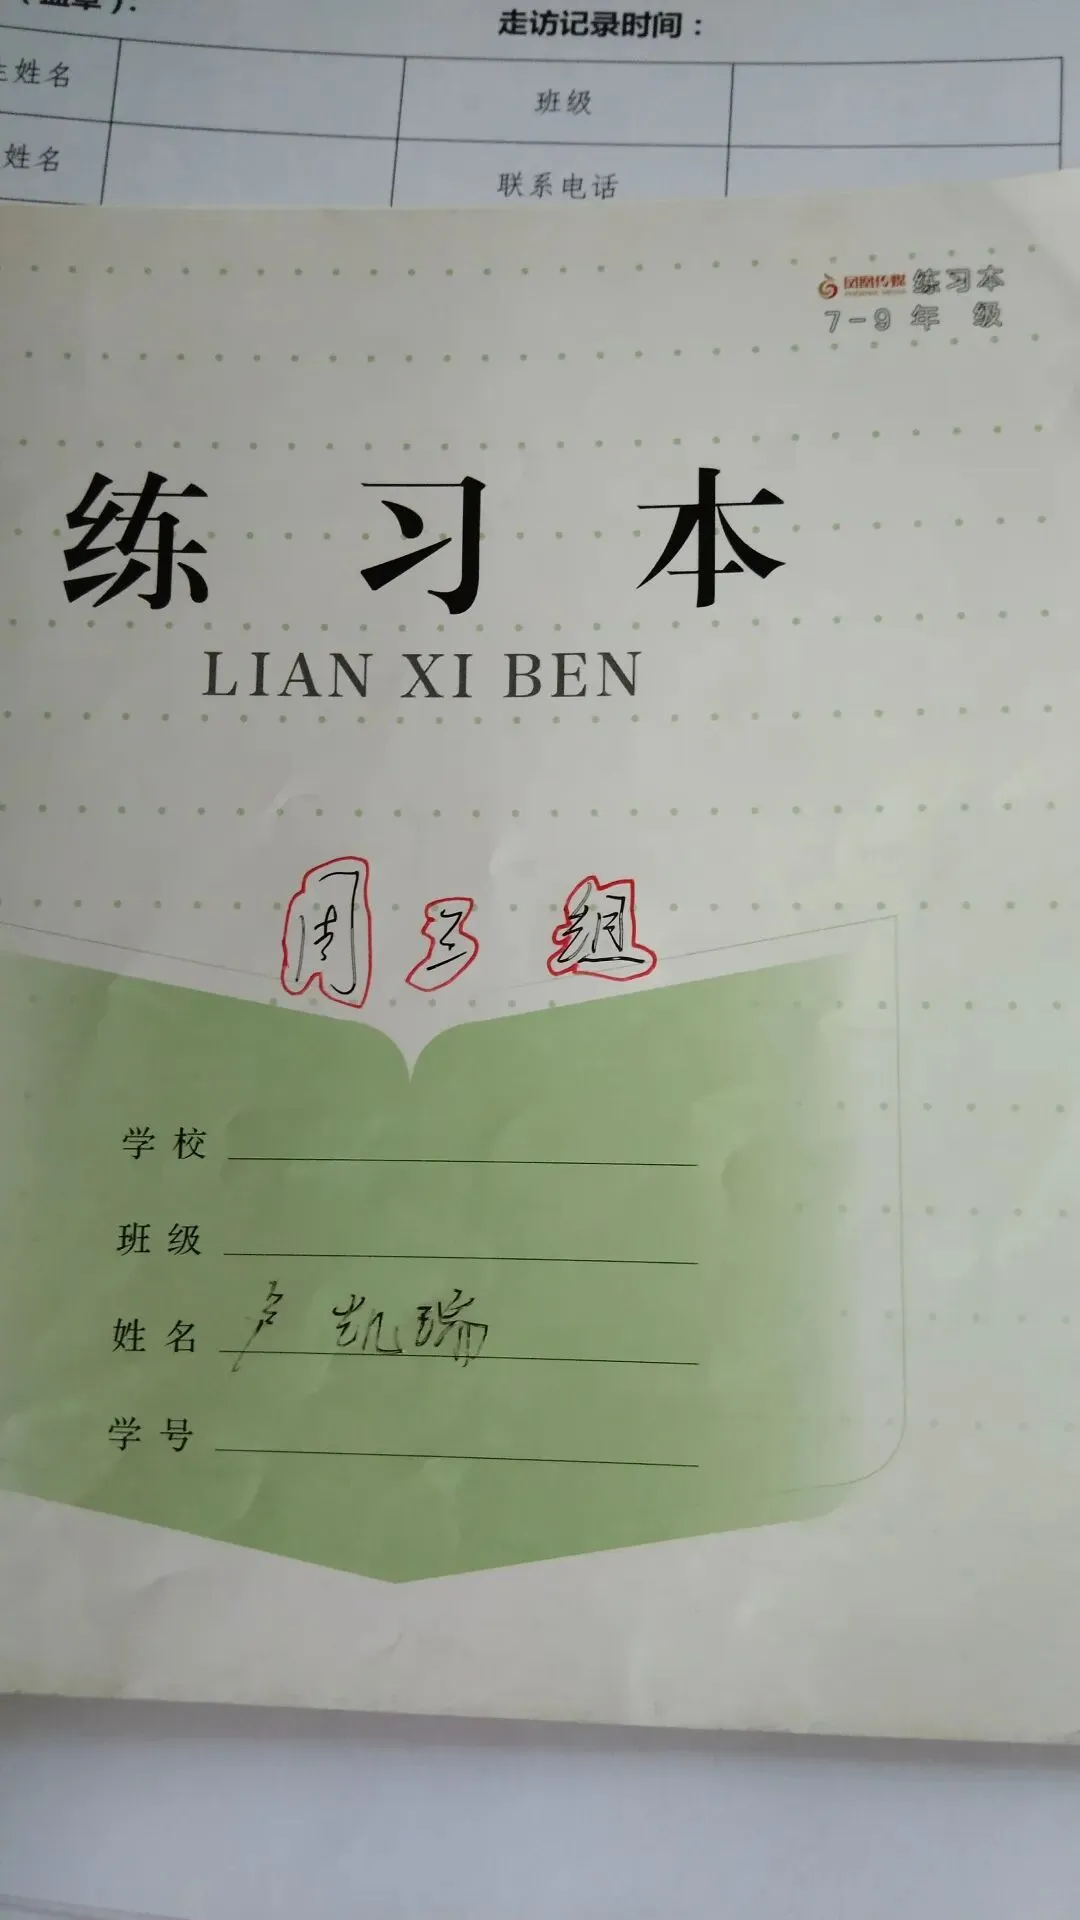 走访记录时间：
姓名
班级
姓名
联系电话
凤凰传媒 练习本
7-9 年 级
练 习 本
LIAN XI BEN
周 三 组
学 校
班 级
姓 名 卢 凯 瑞
学 号